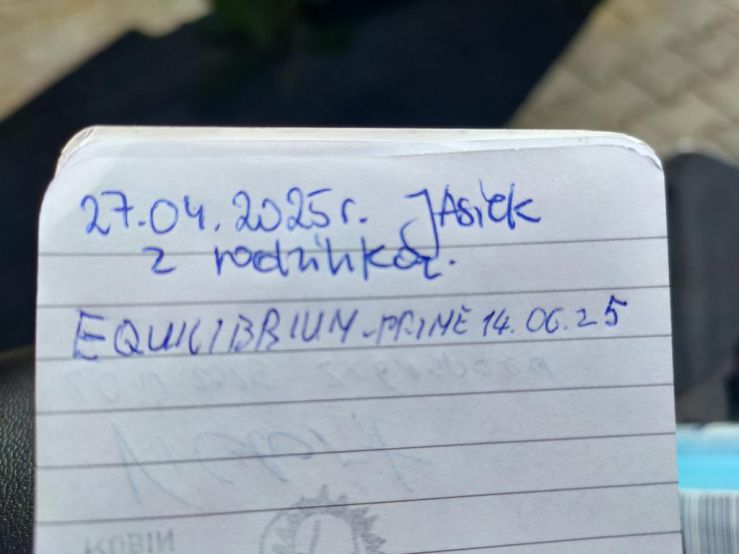 27.04.2025r. JAsiek
z rodzinką.
EQUILIBRIUM-PRIME 14.06.25